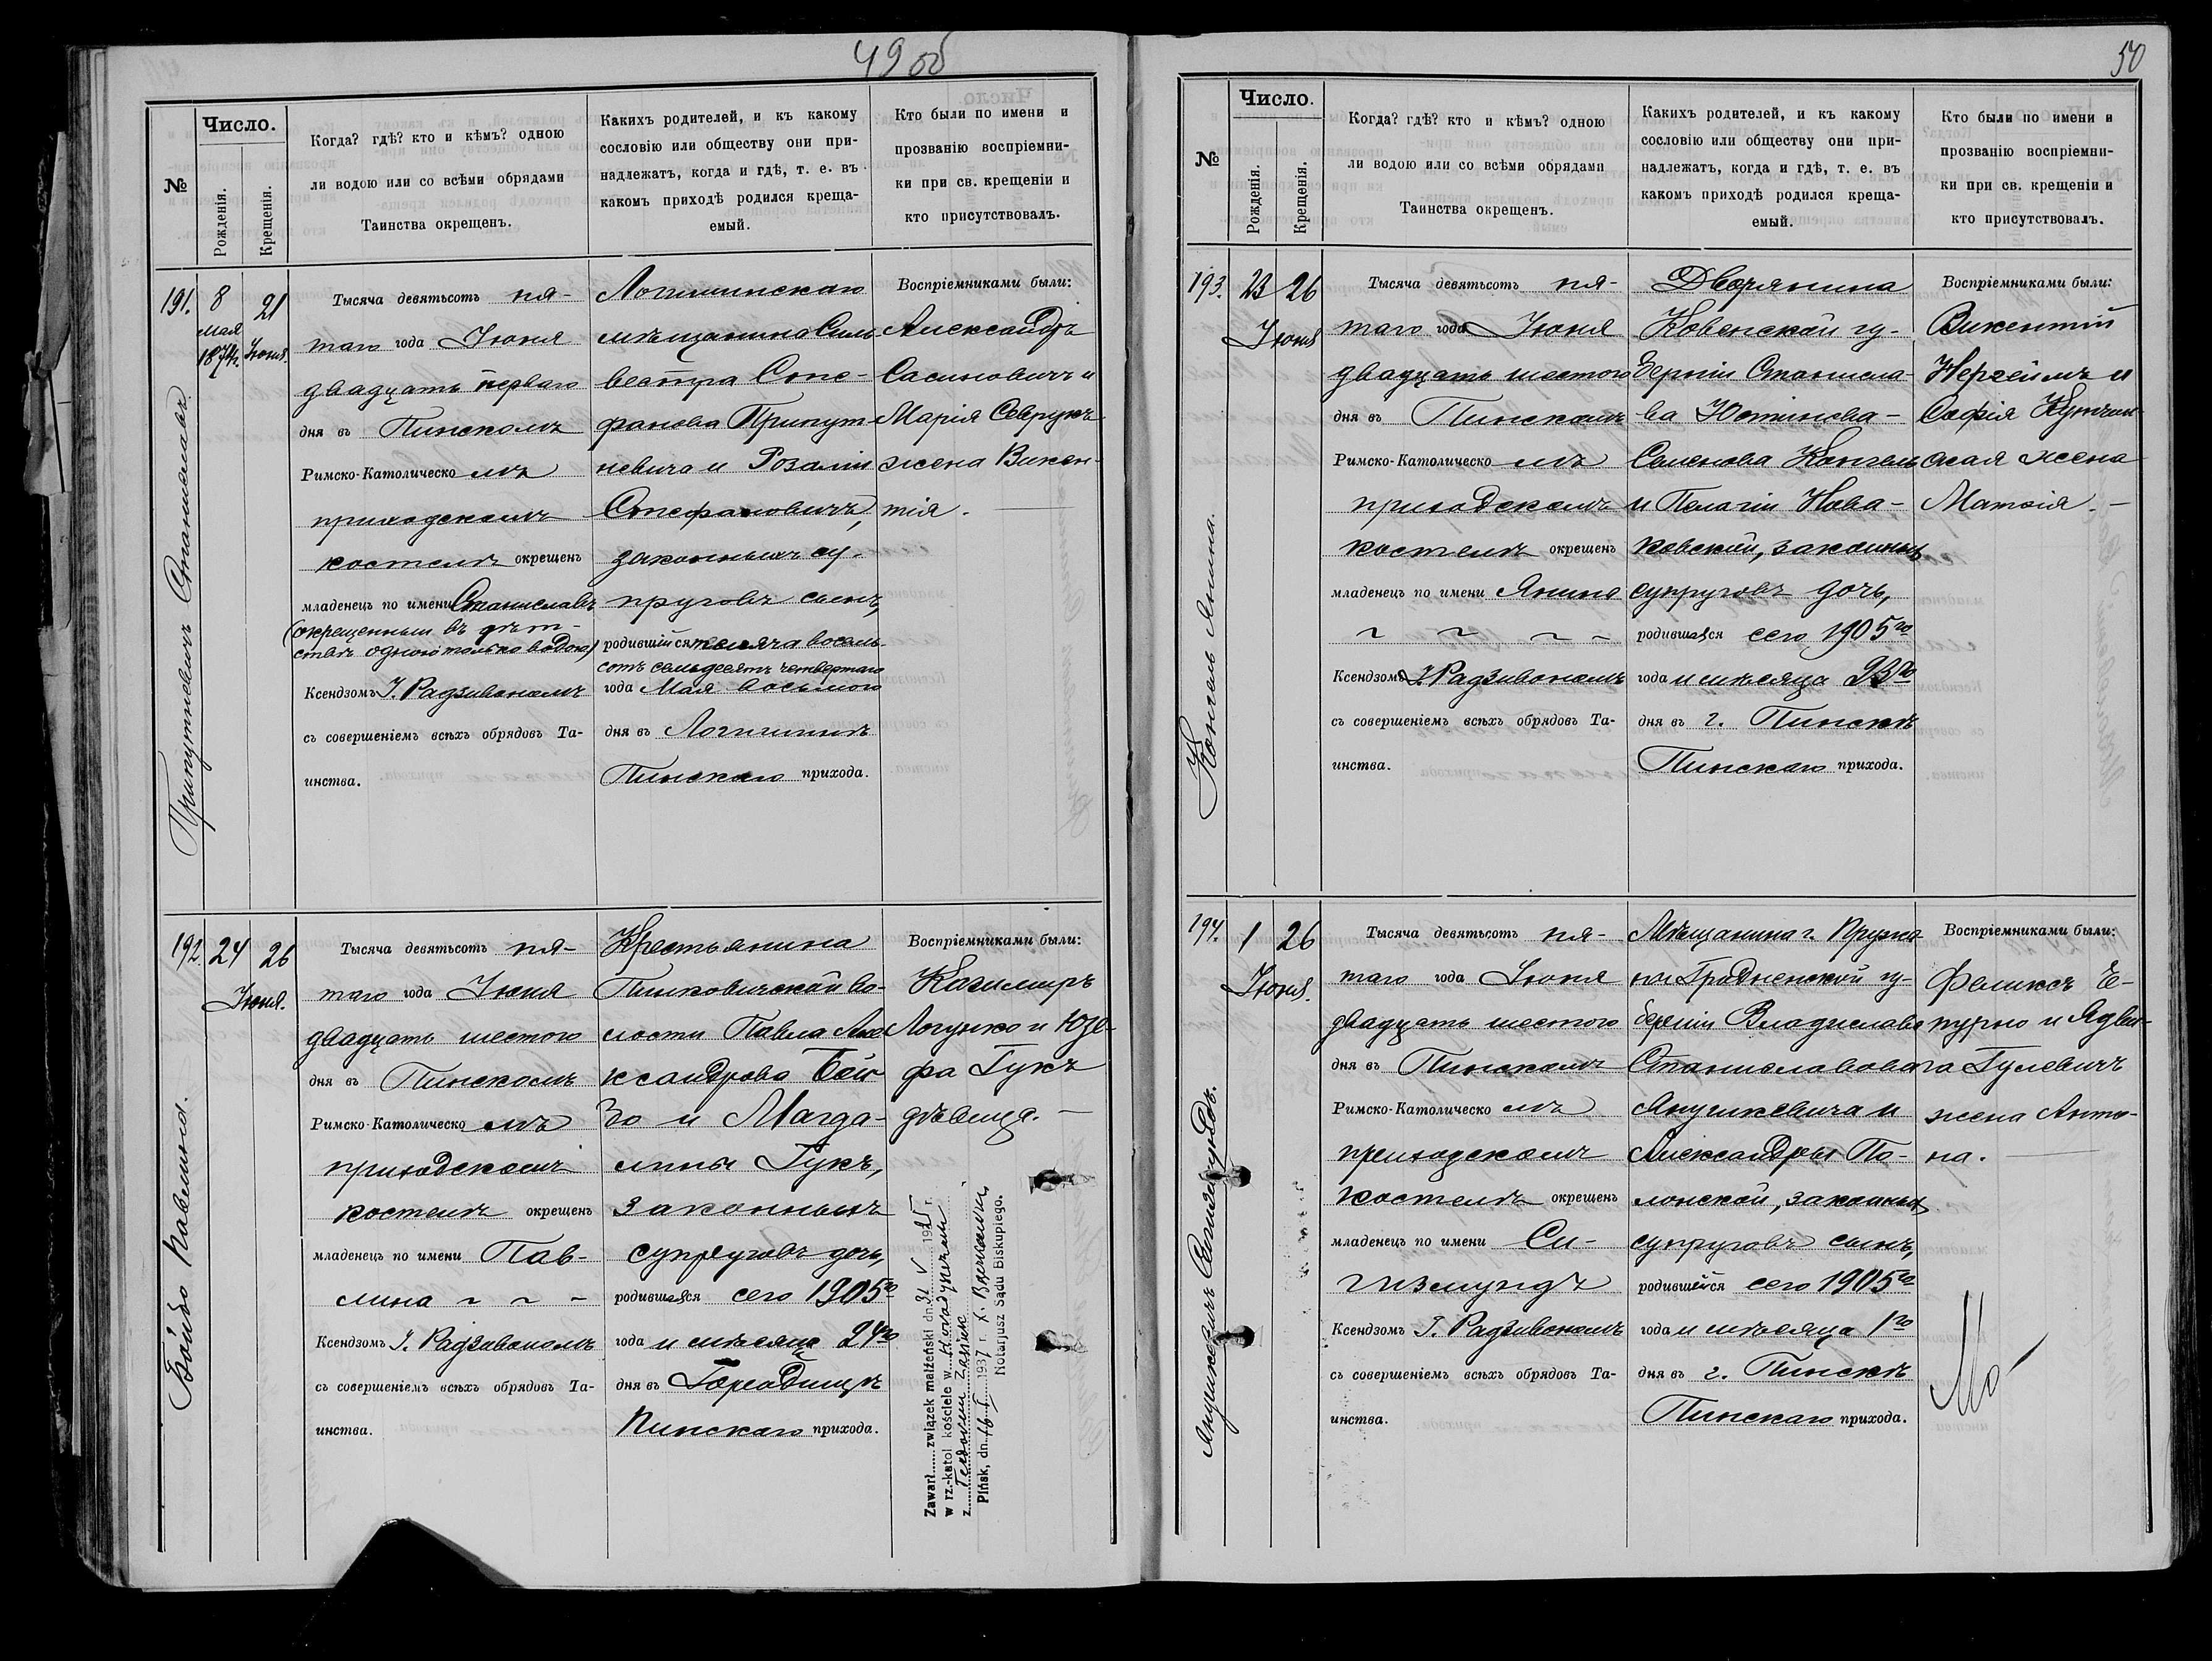 49 об
№
Число.
Рожденія.
Крещенія.
Когда? гдѣ? кто и кѣмъ? одною
ли водою или со всѣми обрядами
Таинства окрещенъ.
Какихъ родителей, и къ какому
сословію или обществу они при-
надлежатъ, когда и гдѣ, т. е. въ
какомъ приходѣ родился креща-
емый.
Кто были по имени и
прозванію воспріемни-
ки при св. крещеніи и
кто присутствовалъ.
191.
8
мая
1874.
21
Іюня.
Припутневичъ Станиславъ
Тысяча девятьсотъ пя-
таго года Іюня
двадцать перваго
дня въ Пинскомъ
Римско-Католическо мъ
приходскомъ
костелѣ окрещенъ
младенецъ по имени Станиславъ
(окрещенный въ дѣт-
ствѣ одною только водою)
Ксендзомъ І. Радзивономъ
съ совершеніемъ всѣхъ обрядовъ Та-
инства.
Логишинскаго
мѣщанина Силь-
вестра Сте-
фанова Припут-
невича и Розаліи
Стефановичъ,
законныхъ су-
пруговъ сынъ,
родившійся тысяча восемь-
сотъ семьдесятъ четвертаго
года Мая восьмого
дня въ Логишинѣ
Пинскаго прихода.
Воспріемниками были:
Александръ
Сасиновичъ и
Марія Севрукъ
жена Викен-
тія.
192.
24
26
Іюня.
Бойбо Павлина.
Тысяча девятьсотъ пя-
таго года Іюня
двадцать шестого
дня въ Пинскомъ
Римско-Католическо мъ
приходскомъ
костелѣ окрещенъ
младенецъ по имени Пав-
лина
Ксендзомъ І. Радзивономъ
съ совершеніемъ всѣхъ обрядовъ Та-
инства.
Крестьянина
Пинковичской во-
лости Павла Але-
ксандрова Бой-
бо и Магда-
лины Гукъ,
законныхъ
супруговъ дочь,
родившаяся сего 1905го
года и мѣсяца 24го
дня въ
Пинскаго прихода.
Воспріемниками были:
Казимиръ
Логунко и Юзе-
фа Гукъ
дѣвица.
Zawarł związek małżeński dn. 31 V 1925 r.
w rz.-katol kościele w
z Teodorem
Pińsk, dn. 16 I 1937 r. X.
Notarjusz Sądu Biskupiego.
50
№
Число.
Рожденія.
Крещенія.
Когда? гдѣ? кто и кѣмъ? одною
ли водою или со всѣми обрядами
Таинства окрещенъ.
Какихъ родителей, и къ какому
сословію или обществу они при-
надлежатъ, когда и гдѣ, т. е. въ
какомъ приходѣ родился креща-
емый.
Кто были по имени и
прозванію воспріемни-
ки при св. крещеніи и
кто присутствовалъ.
193.
23
26
Іюня
Конгель Янина.
Тысяча девятьсотъ пя-
таго года Іюня
двадцать шестого
дня въ Пинскомъ
Римско-Католическо мъ
приходскомъ
костелѣ окрещенъ
младенецъ по имени Янина
Ксендзомъ І. Радзивономъ
съ совершеніемъ всѣхъ обрядовъ Та-
инства.
Дворянина
Ковенской гу-
берніи Станисла-
ва Юстинова-
Семенова Конгель
и Пелагіи Нова-
ковской, законныхъ
супруговъ дочь,
родившаяся сего 1905го
года и мѣсяца 23го
дня въ г. Пинскѣ
Пинскаго прихода.
Воспріемниками были:
Викентій
Нергеймъ и
Софія
ская жена
Матвія.
194.
1
26
Іюня.
Янушкевичъ Сигизмундъ.
Тысяча девятьсотъ пя-
таго года Іюня
двадцать шестого
дня въ Пинскомъ
Римско-Католическо мъ
приходскомъ
костелѣ окрещенъ
младенецъ по имени Си-
гизмундъ
Ксендзомъ І. Радзивономъ
съ совершеніемъ всѣхъ обрядовъ Та-
инства.
Мѣщанина г. Пружа-
ны Гродненской гу-
берніи Владислава
Станиславова
Янушкевича и
Александры По-
лонской, законныхъ
супруговъ сынъ,
родившійся сего 1905го
года и мѣсяца 1го
дня въ г. Пинскѣ
Пинскаго прихода.
Воспріемниками были:
Феликсъ Че-
пурно и Ядви-
га Гулевичъ
жена Анто-
на.